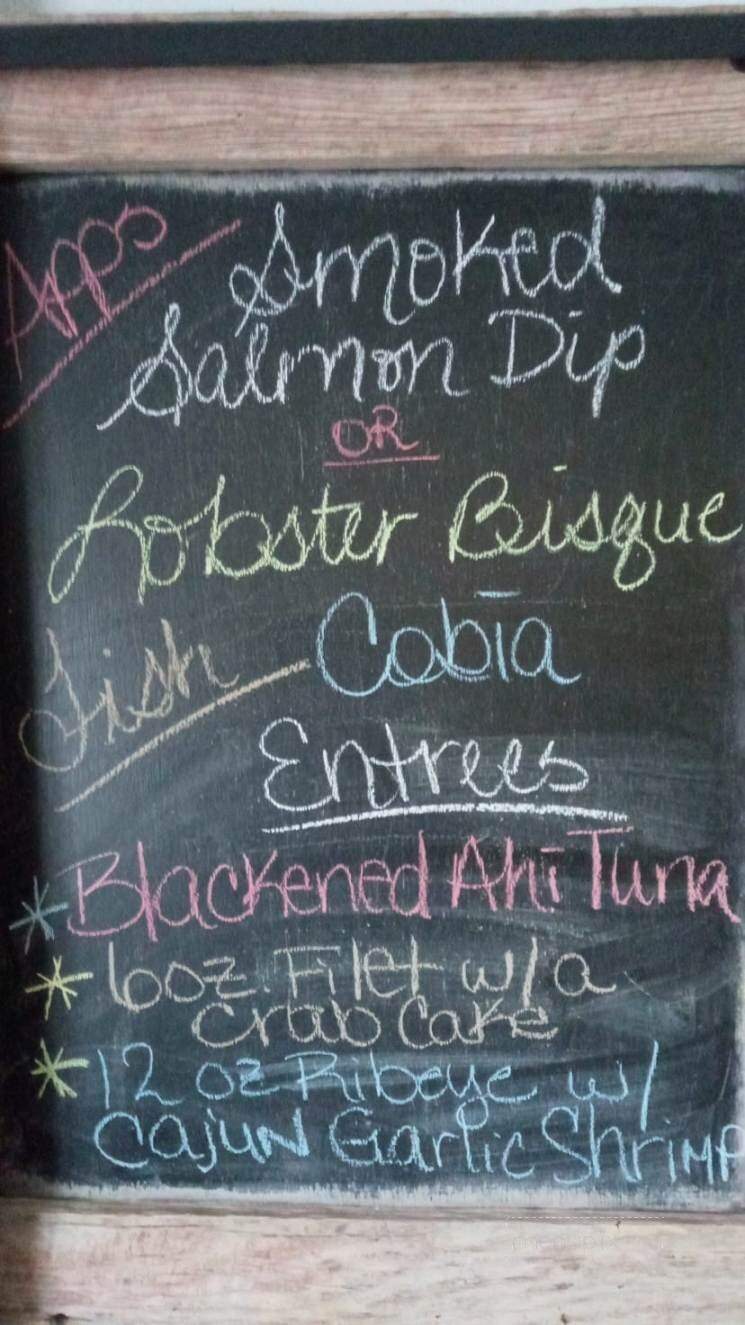 Apps
Smoked
Salmon Dip
OR
Lobster Bisque
Fish
Cobia
Entrees
* Blackened Ahi Tuna
* 6oz. Filet w/a
Crab Cake
* 12 oz Ribeye w/
Cajun Garlic Shrimp